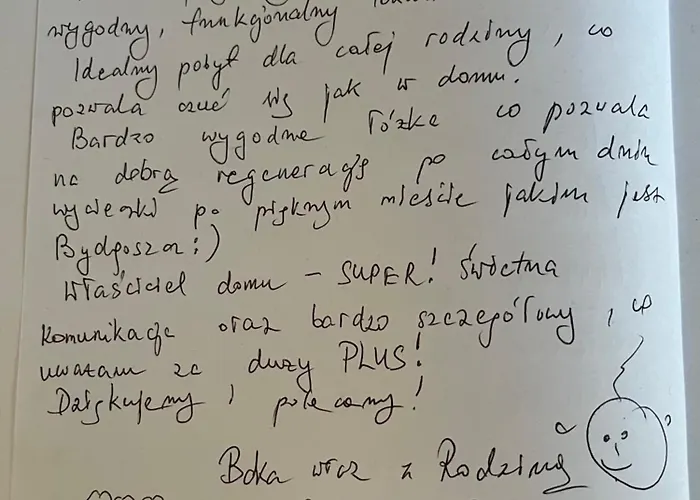 wygodny, funkcjonalny
Idealny pobyt dla całej rodziny, co
pozwala czuć się jak w domu.
Bardzo wygodne łóżka co pozwala
na dobrą regenerację po całym dniu
wycieczki po pięknym mieście jakim jest
Bydgoszcz :)
Właściciel domu - SUPER! Świetna
komunikacja oraz bardzo szczegółowy, co
uważam za duży PLUS!
Dziękujemy i polecamy!
wraz z Rodziną